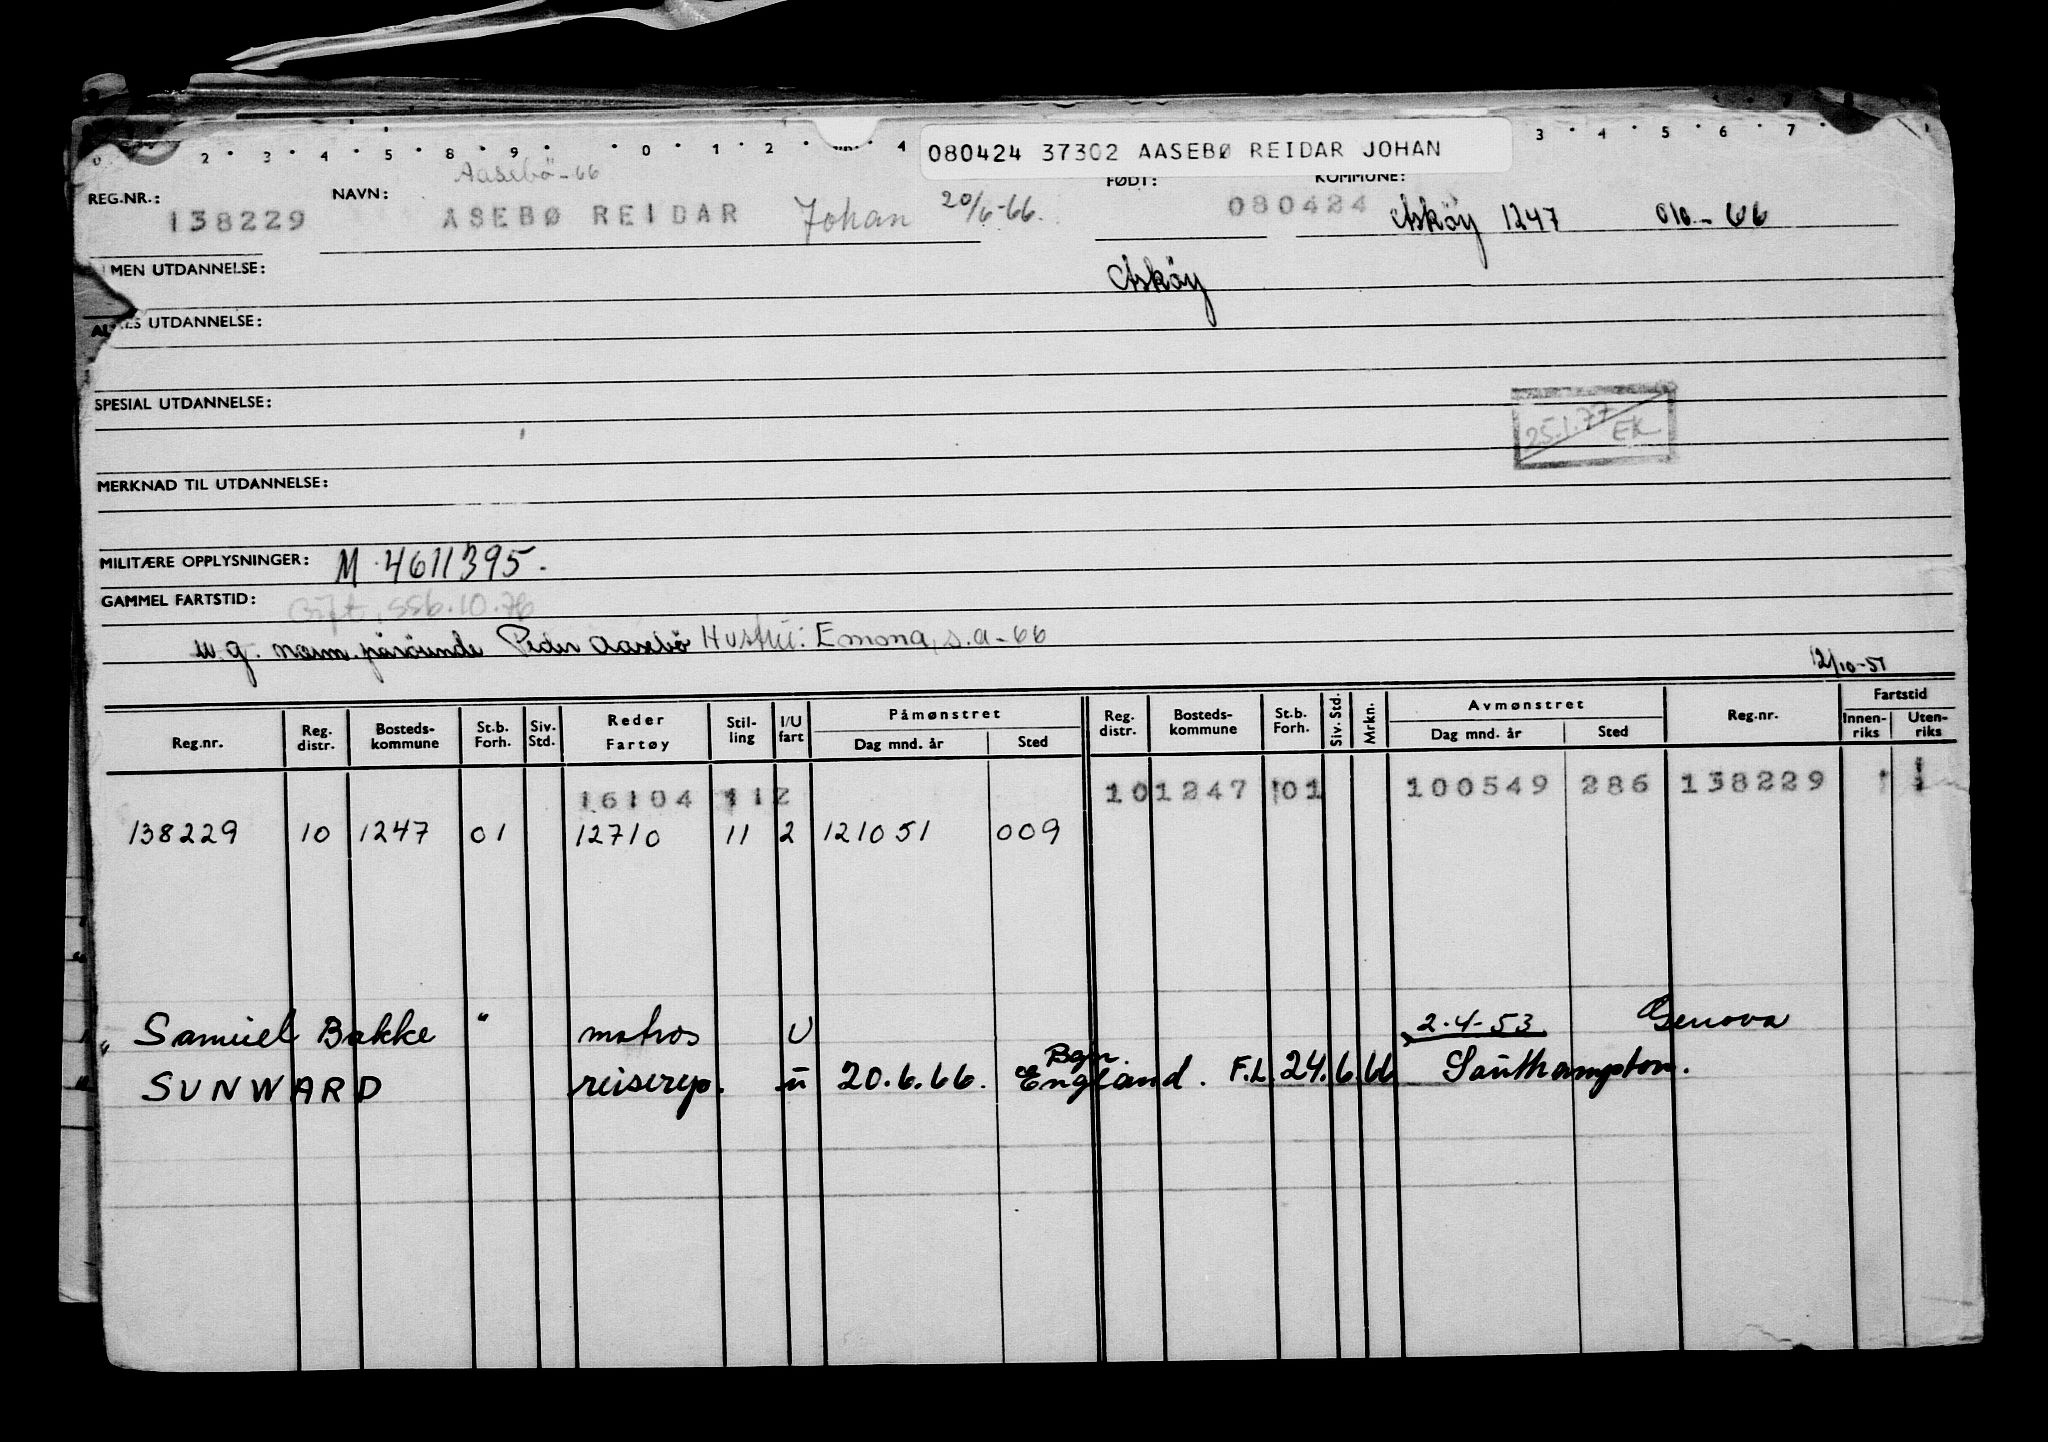 080424 37302 AASEBØ REIDAR JOHAN
2 3 4 5 8 9 0 1 2 4 3 4 5 6 7
Aasebö-66
REG.NR.: NAVN: FØDT: KOMMUNE:
138229 ASEBØ REIDAR Johan 20/6-66. 080424 Asköy 1247 010-66
MEN UTDANNELSE: Asköy
UTDANNELSE:
SPESIAL UTDANNELSE:
25.1.77 EK
MERKNAD TIL UTDANNELSE:
MILITÆRE OPPLYSNINGER: M.4611395.
GAMMEL FARTSTID: Gift, ssb.10.76
u.g. nærm. pårörende Peder Aasebö Hustru: Emona, s.a-66
12/10-51
Reg.nr. Reg. distr. Bosteds- kommune St.b. Forh. Siv. Std. Reder Fartøy Stil- ling I/U fart Påmønstret Dag mnd. år Sted Reg. distr. Bosteds- kommune St.b. Forh. Siv. Std. Mrkn. Avmønstret Dag mnd. år Sted Reg.nr. Fartstid Innen- riks Uten- riks
16104 112 10 1247 01 100549 286 138229
138229 10 1247 01 12710 11 2 121051 009
" Samuel Bakke " matros U 2-4-53 Genova
SUNWARD reiserep. u 20.6.66. Bgn. England. F.L. 24.6.66 Southampton.